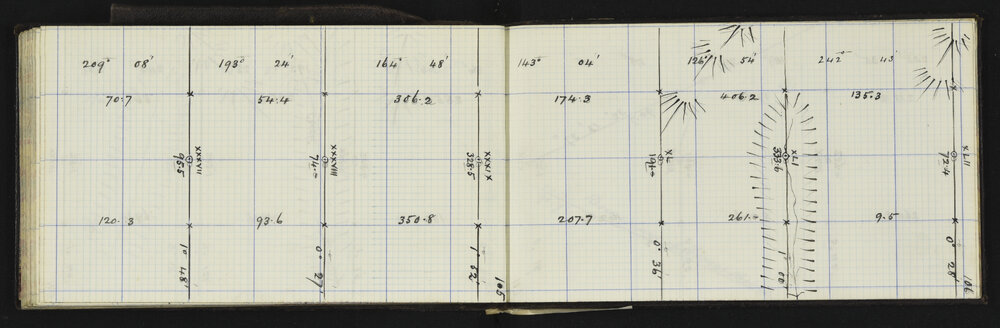 209° 08' 193° 24' 164° 48'
70.7 54.4 306.2
XXXVII
95.5
XXXVIII
74.-
XXXIX
328.5
120.3 93.6 350.8
1° 48'
0° 27'
105
143° 04' 126° 54' 242° 43'
174.3 406.2 135.3
XL
191.-
XLI
333.6
XLII
72.4
207.7 261.- 9.5
0° 36'
1° 00'
0° 28'
106